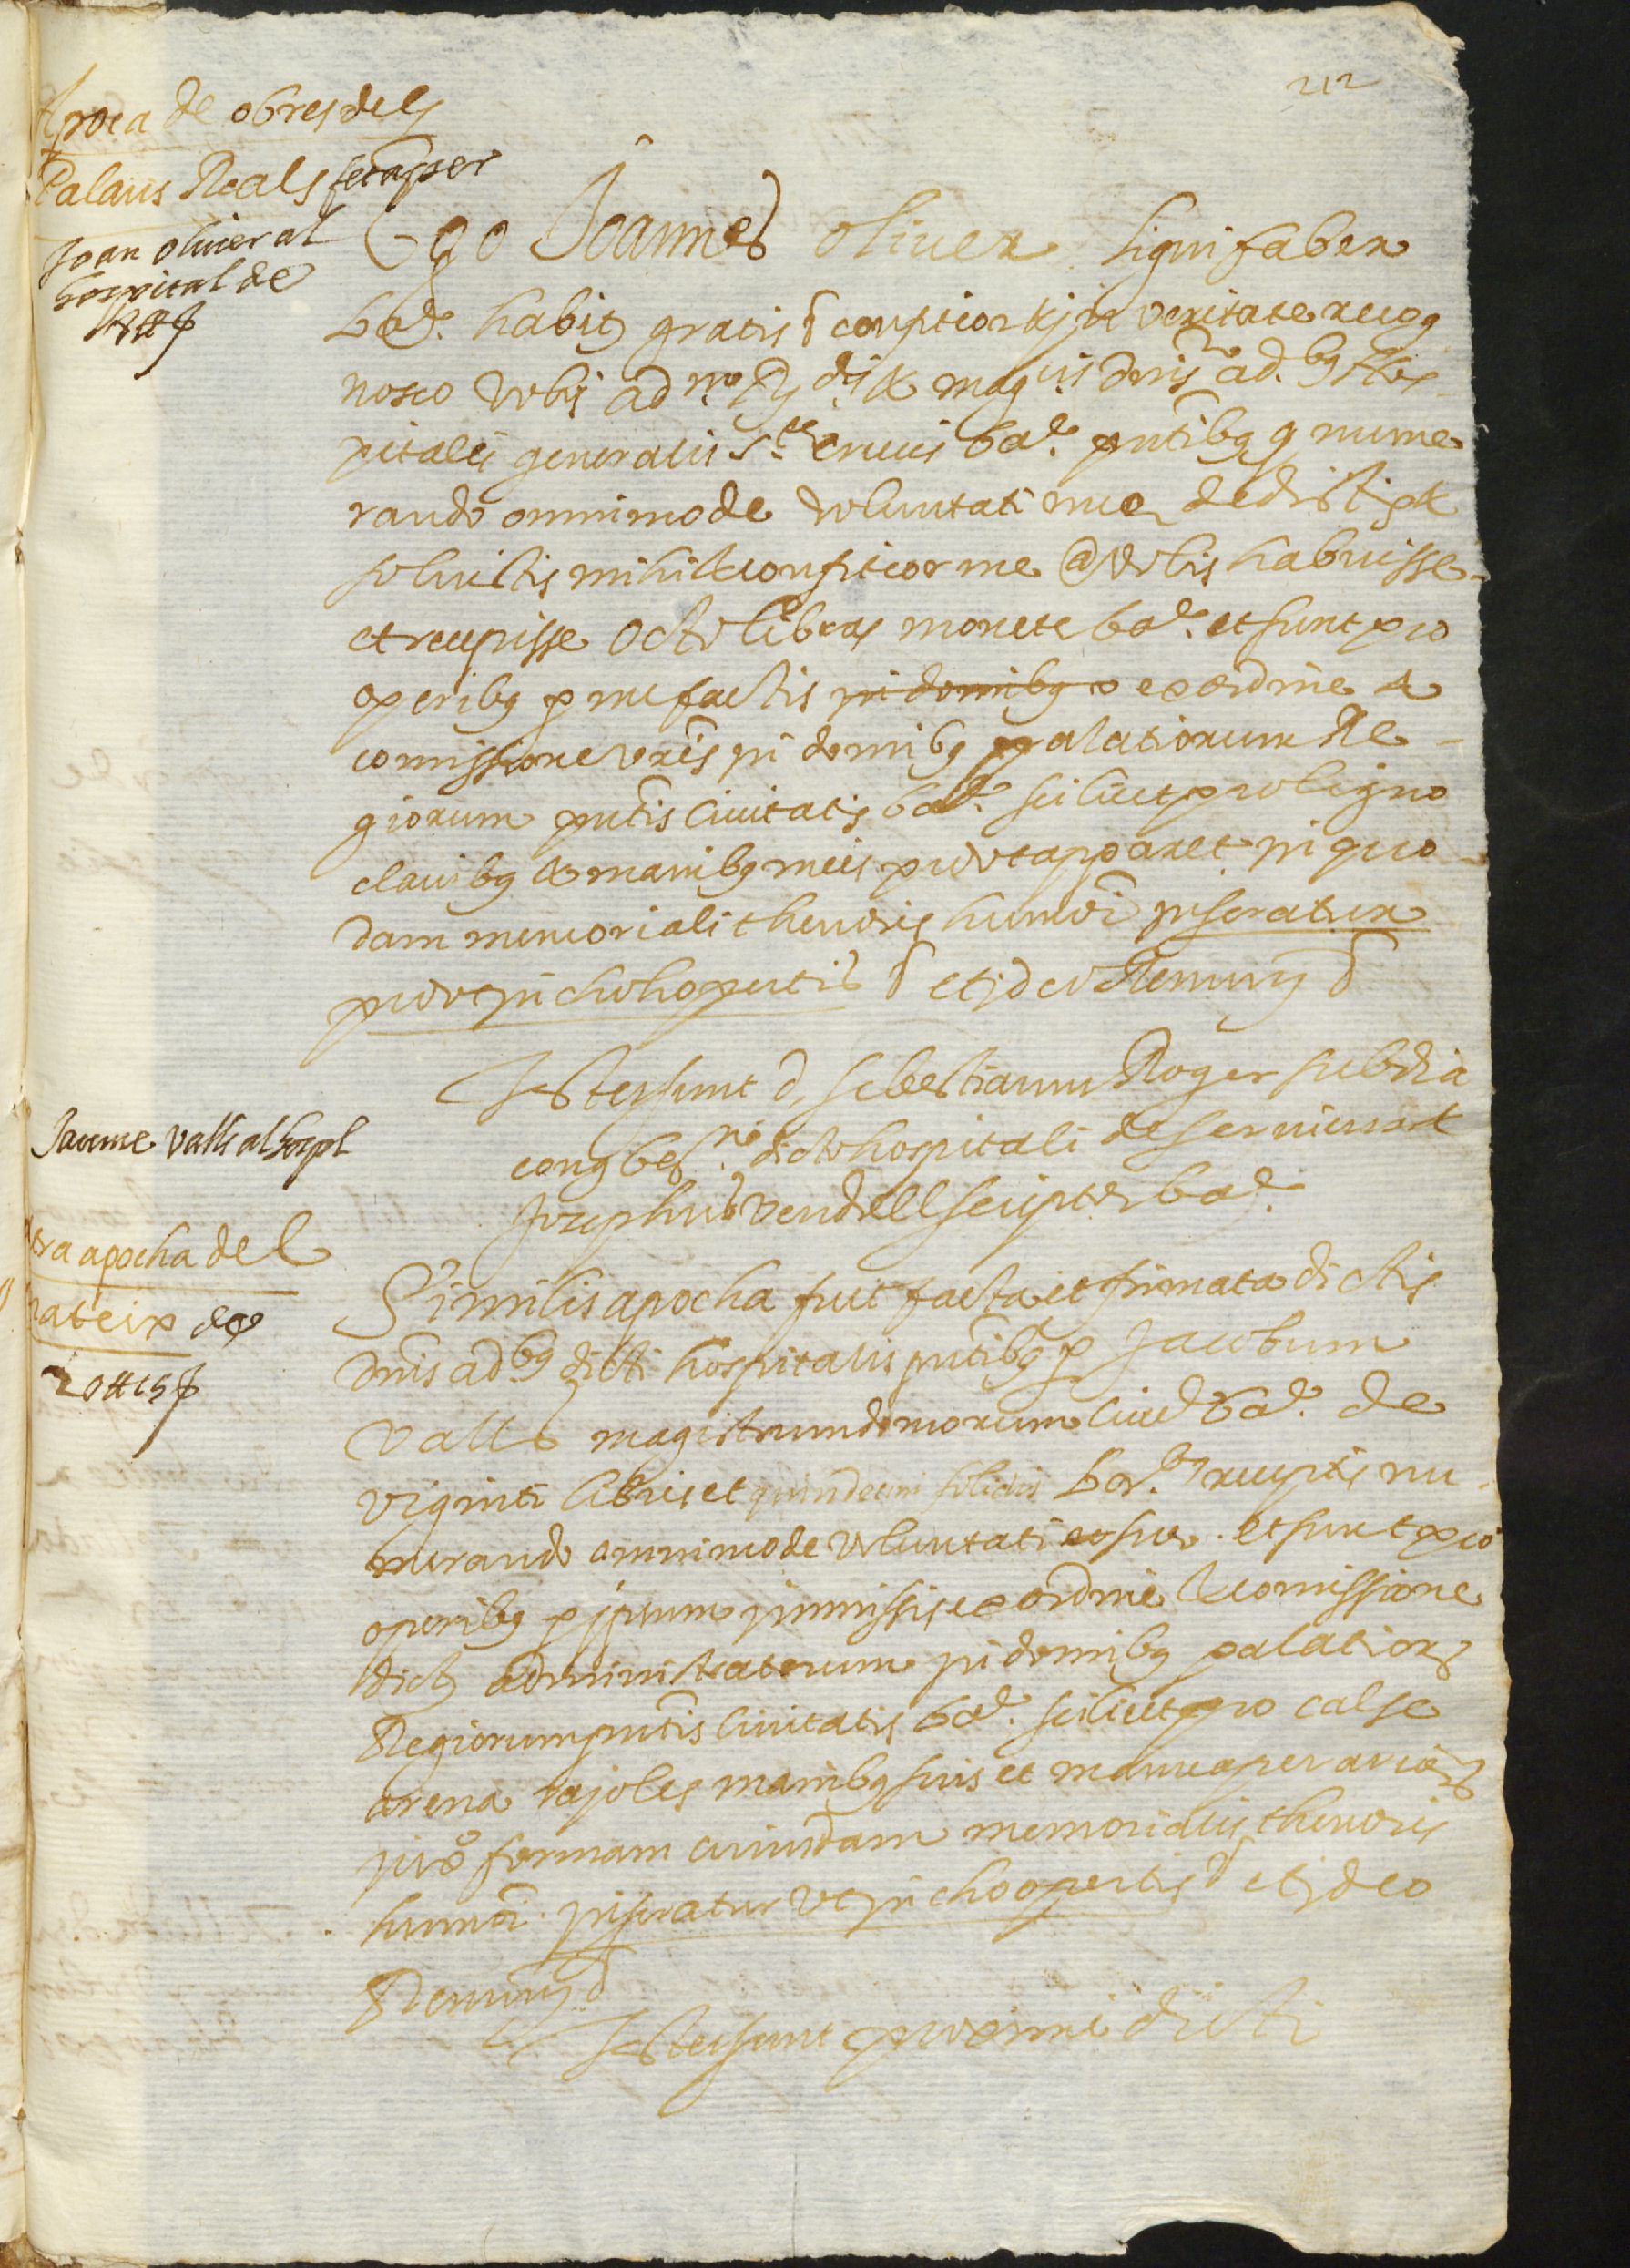 212
Apoca de obres dels
Palaus Reals fetas per
Joan oliuer al
hospital de
Ego Joannes oliuer lignifaber
bar. habit. gratis & confiteor & in veritate recog
nosco vobis ad. magcis dnis ad.bus Hos-
pitalis generalis Ste crucis bar. pntibus q nume
rando omnimode voluntati mee dedistis &
soluistis mihi & confiteor me a vobis habuisse
et recepisse octo libras monete bar. et sunt pro
operibus p me factis in domibus ex ordine &
comissione vris in domibus palatiorum Re-
giorum pntis ciuitatis bar. scilicet pro ligno
clauibus & manibus meis prout apparet in quo
dam memoriali thenoris humoi inseratur
prout in cohopertis & et ideo Renuns &
Testes sunt d. sebestianus Roger subdia
conus dicto hospitali deseruiens &
Josephus vendrell scriptor bar.
Jaume valls al hospl
altra apocha del
mateix de
20 ll 15 s
Similis apocha fuit facta et firmata dictis
dnis ad.bus dicti hospitalis pntibus p Jacobum
valls magistrum domorum ciue bar. de
viginti libris et quindecim solidis bar. receptis nu-
merando omnimode voluntati sue. et sunt pro
operibus p ipsum immissis ex ordine & comissione
dictor administratorum in domibus palatior
Regiorum pntis ciuitatis bar. scilicet pro cals
arena rajoles manibus suis et manuoperarior
iux formam cuiusdam memorialis thenoris
humoi inseratur vt in chopertis & et ideo
Renuns &
Testes sunt proxime dicti